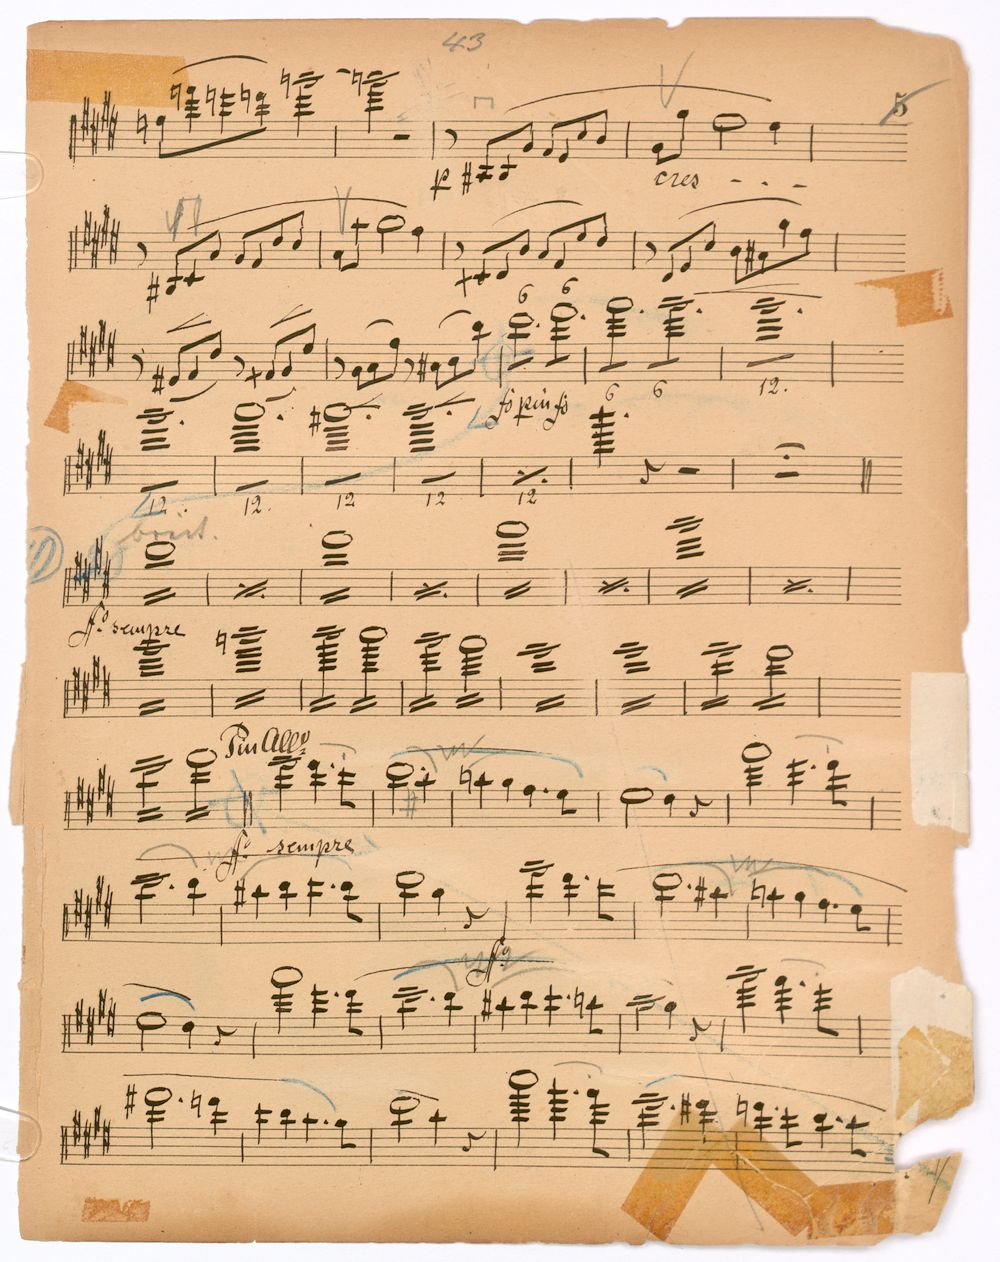 43
5
p cres - - -
6 6
6 6 12.
12. 12. 12 12 12
breit.
ff° sempre
Piu All°
ff° sempre
ff°